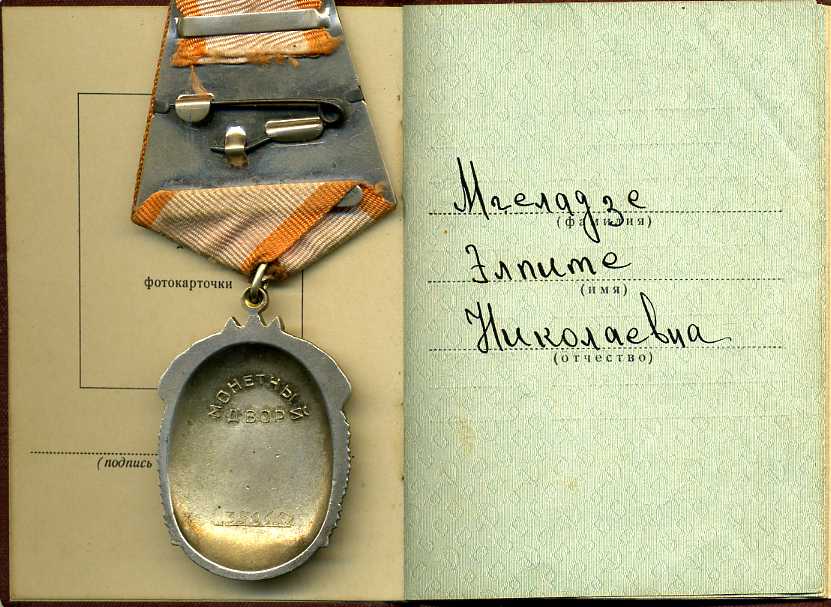 фотокарточки
(подпись
МОНЕТНЫЙ
ДВОР
Мгеладзе
(фамилия)
Элпите
(имя)
Николаевна
(отчество)